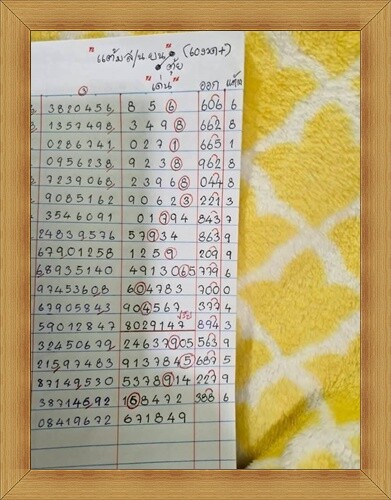 "แต้มส/น.บน" (60งวด+)
ตุ้ย
"เด่น" ออก แต้ม
3820456 8 5 6 606 6
1357498 3 4 9 8 662 8
0286741 0 2 7 1 665 1
0956238 9 2 3 8 962 8
7239068 2 3 9 6 8 044 8
9085162 9 0 6 2 3 221 3
3546091 0 1 7 9 4 843 7
24839576 5 7 9 3 4 863 9
67901258 1 2 5 9 209 9
68935140 4913065 779 6
97453608 604783 700 0
67905843 904567 377 4
59012847 8029147 894 3
32450679 24637905 563 9
21597483 9137845 687 5
87149530 5378914 227 9
38714592 168472 388 6
08419672 671849